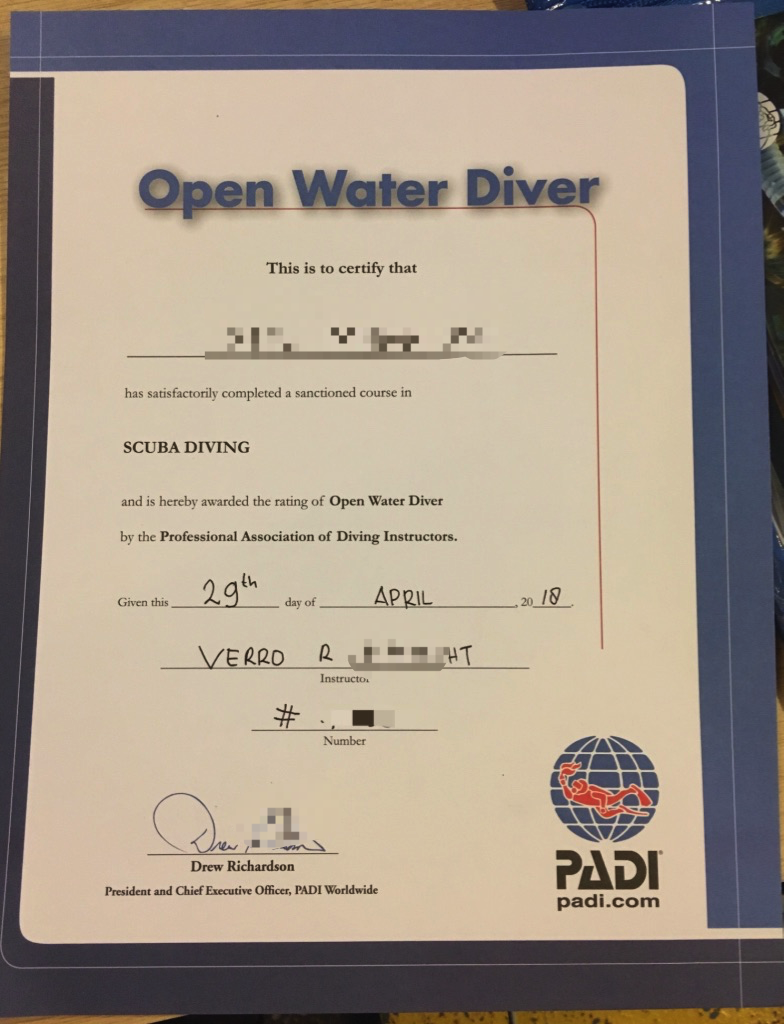 Open Water Diver
This is to certify that
has satisfactorily completed a sanctioned course in
SCUBA DIVING
and is hereby awarded the rating of Open Water Diver
by the Professional Association of Diving Instructors.
Given this 29th day of APRIL, 2018.
VERRO R HT
Instructor
#
Number
Drew
Drew Richardson
President and Chief Executive Officer, PADI Worldwide
PADI®
padi.com